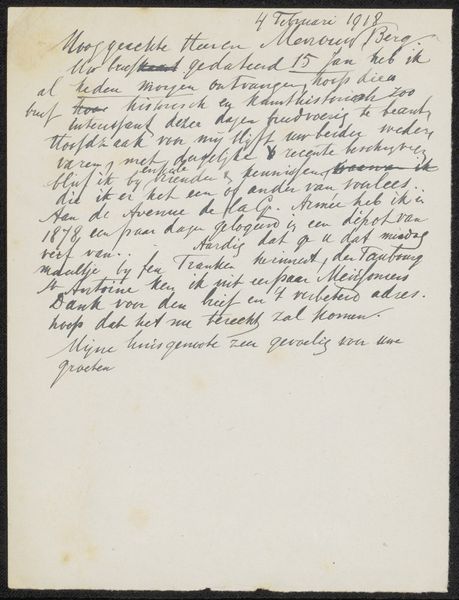 4 Februari 1918
Hooggeachte Heer en Mevrouw Berg.
Uw brief gedateerd 15 Jan heb ik
al heden morgen ontvangen, hoop die
brief historisch en kunsthistorisch zoo
interessant dezer dagen
Hoofdzaak voor mij blijft uw beider weder
varen, met recente
blijf ik bij enkele vrienden & kennissen
die ik er het een of ander van voorlees..
Aan de Avenue de la Gr. Armee heb ik in
1878 een paar dagen gelogeerd in een dépôt van
verf van.. Aardig dat ge u dat
maaltje bij ten herinnert, den Faubourg
St Antoine ken ik uit een paar
Dank voor den brief en 't verbeterd adres.
hoop dat het nu terecht zal komen.
Mijne huisgenoote zeer gevoelig voor uwe
groeten